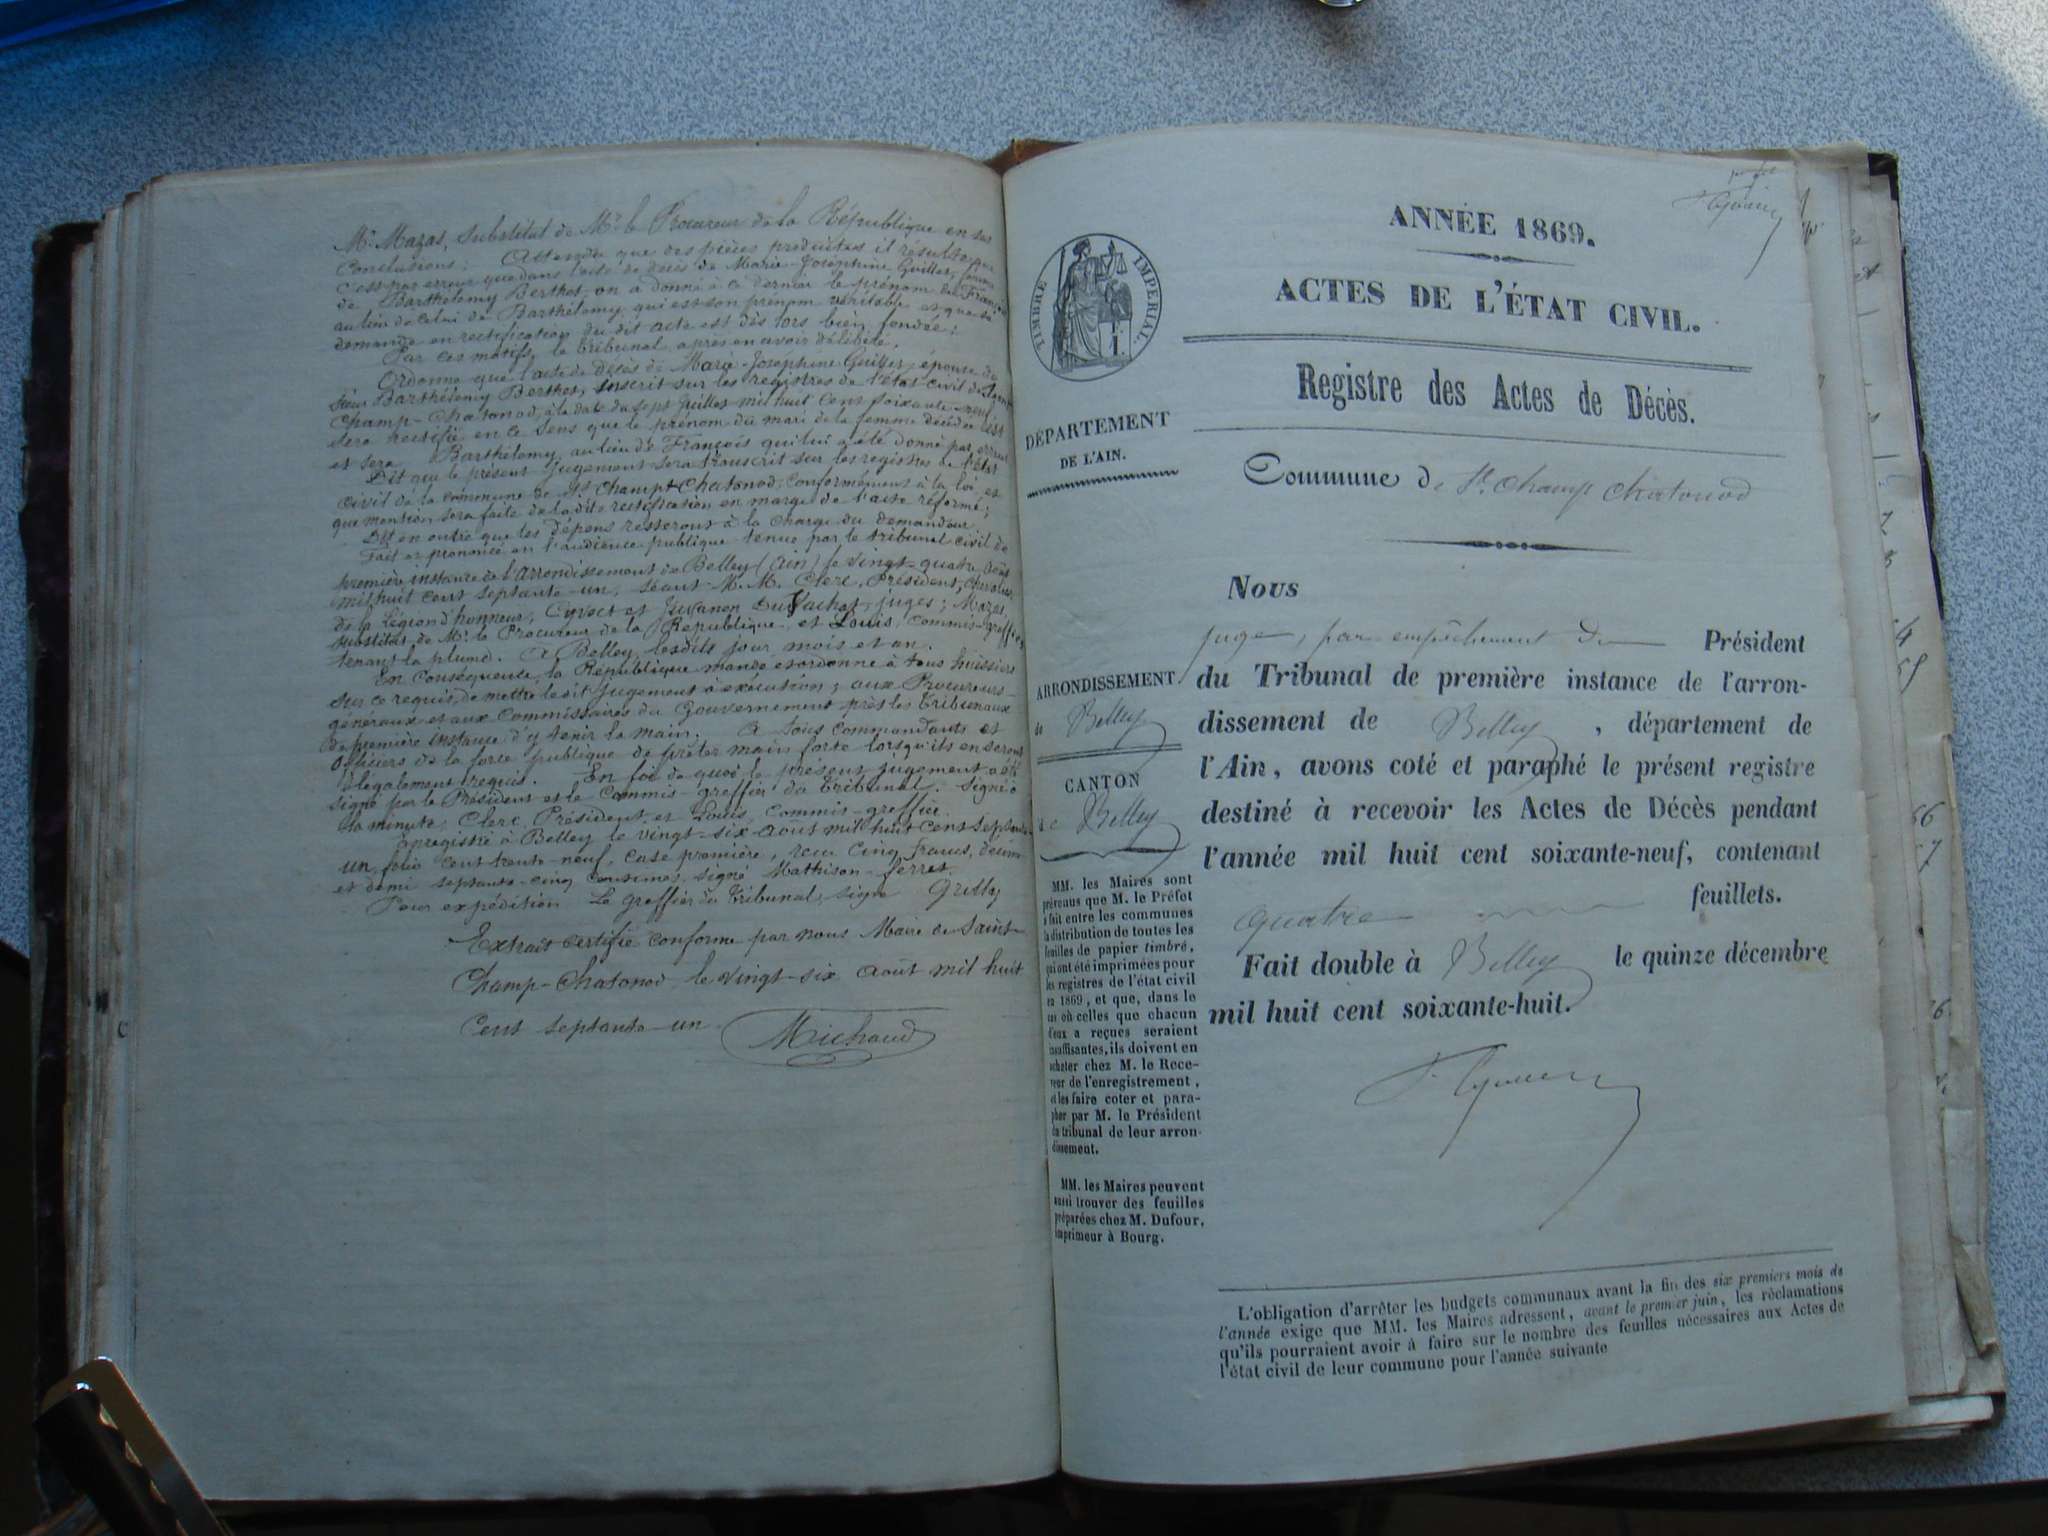 Mr. Mazas, Substitut de Mr. le Procureur de la République en ses
Conclusions; Attendu que des pièces produites il résulte que
c'est par erreur que dans l'acte de décès de Marie-Joséphine Guillet, femme
de Barthélemy Berthet on a donné à ce dernier le prénom de François
au lieu de celui de Barthélemy, qui est son prénom véritable et que sa
demande en rectification du dit acte est dès lors bien fondée;
Par ces motifs, le tribunal après en avoir délibéré,
Ordonne que l'acte de décès de Marie-Joséphine Guillet, épouse de
sieur Barthélemy Berthet, inscrit sur les registres de l'état civil de
Champ-Chatonod, à la date du sept Juillet mil huit cent soixante-neuf
sera rectifié en ce sens que le prénom du mari de la femme décédée est
et sera Barthélemy, au lieu de François qui lui a été donné par erreur
Dit que le présent jugement sera transcrit sur les registres de l'état
civil de la commune de St. Champ-Chatonod, conformément à la loi et
que mention sera faite de la dite rectification en marge de l'acte réformé;
Dit en outre que les dépens resteront à la charge du demandeur.
Fait et prononcé en l'audience publique tenue par le tribunal civil de
première instance de l'arrondissement de Belley (Ain) le vingt-quatre août
mil huit cent septante-un, séant M.M. Clerc, Président, chevalier
de la Légion d'honneur, Cyvoct et juges; Mazas,
substitut de Mr. le Procureur de la République, et Louis, commis-greffier
tenant la plume. A Belley, les dits jour, mois et an.
En conséquence, la République mande et ordonne à tous huissiers
sur ce requis, de mettre le dit jugement à exécution; aux Procureurs-
généraux et aux Commissaires du Gouvernement près les tribunaux
de première instance d'y tenir la main. A tous commandants et
officiers de la force publique de prêter main forte lorsqu'ils en seront
légalement requis. En foi de quoi le présent jugement a été
signé par le Président et le Commis-greffier du tribunal. Signé à
la minute, Clerc, Président, et Louis, Commis-greffier.
Enregistré à Belley le vingt-six août mil huit cent septante
un, folio cent trente-neuf, case première, reçu cinq francs, décime
et demi septante-cinq centimes, signé Mathison-Ferret.
Pour expédition Le greffier du tribunal, signé Grilly
Extrait certifié conforme par nous Maire de Saint-
Champ-Chatonod, le vingt-six août mil huit
Cent septante-un.
Michaud
ANNÉE 1869.
ACTES DE L'ÉTAT CIVIL.
TIMBRE IMPÉRIAL.
Registre des Actes de Décès.
DÉPARTEMENT
DE L'AIN.
Commune de St. Champ Chatonod
Nous
juge, par empêchement du Président
du Tribunal de première instance de l'arron-
dissement de Belley, département de
l'Ain, avons coté et paraphé le présent registre
destiné à recevoir les Actes de Décès pendant
l'année mil huit cent soixante-neuf, contenant
quatre feuillets.
Fait double à Belley le quinze décembre
mil huit cent soixante-huit.
ARRONDISSEMENT
de Belley
CANTON
de Belley
MM. les Maires sont
prévenus que M. le Préfet
a fait entre les communes
la distribution de toutes les
feuilles de papier timbré,
qui ont été imprimées pour
les registres de l'état civil
en 1869, et que, dans le
cas où celles que chacun
d'eux a reçues seraient
insuffisantes, ils doivent en
acheter chez M. le Rece-
veur de l'enregistrement,
et les faire coter et para-
pher par M. le Président
du tribunal de leur arron-
dissement.
MM. les Maires peuvent
aussi trouver des feuilles
préparées chez M. Dufour,
imprimeur à Bourg.
L'obligation d'arrêter les budgets communaux avant la fin des six premiers mois de
l'année exige que MM. les Maires adressent, avant le premier juin, les réclamations
qu'ils pourraient avoir à faire sur le nombre des feuilles nécessaires aux Actes de
l'état civil de leur commune pour l'année suivante